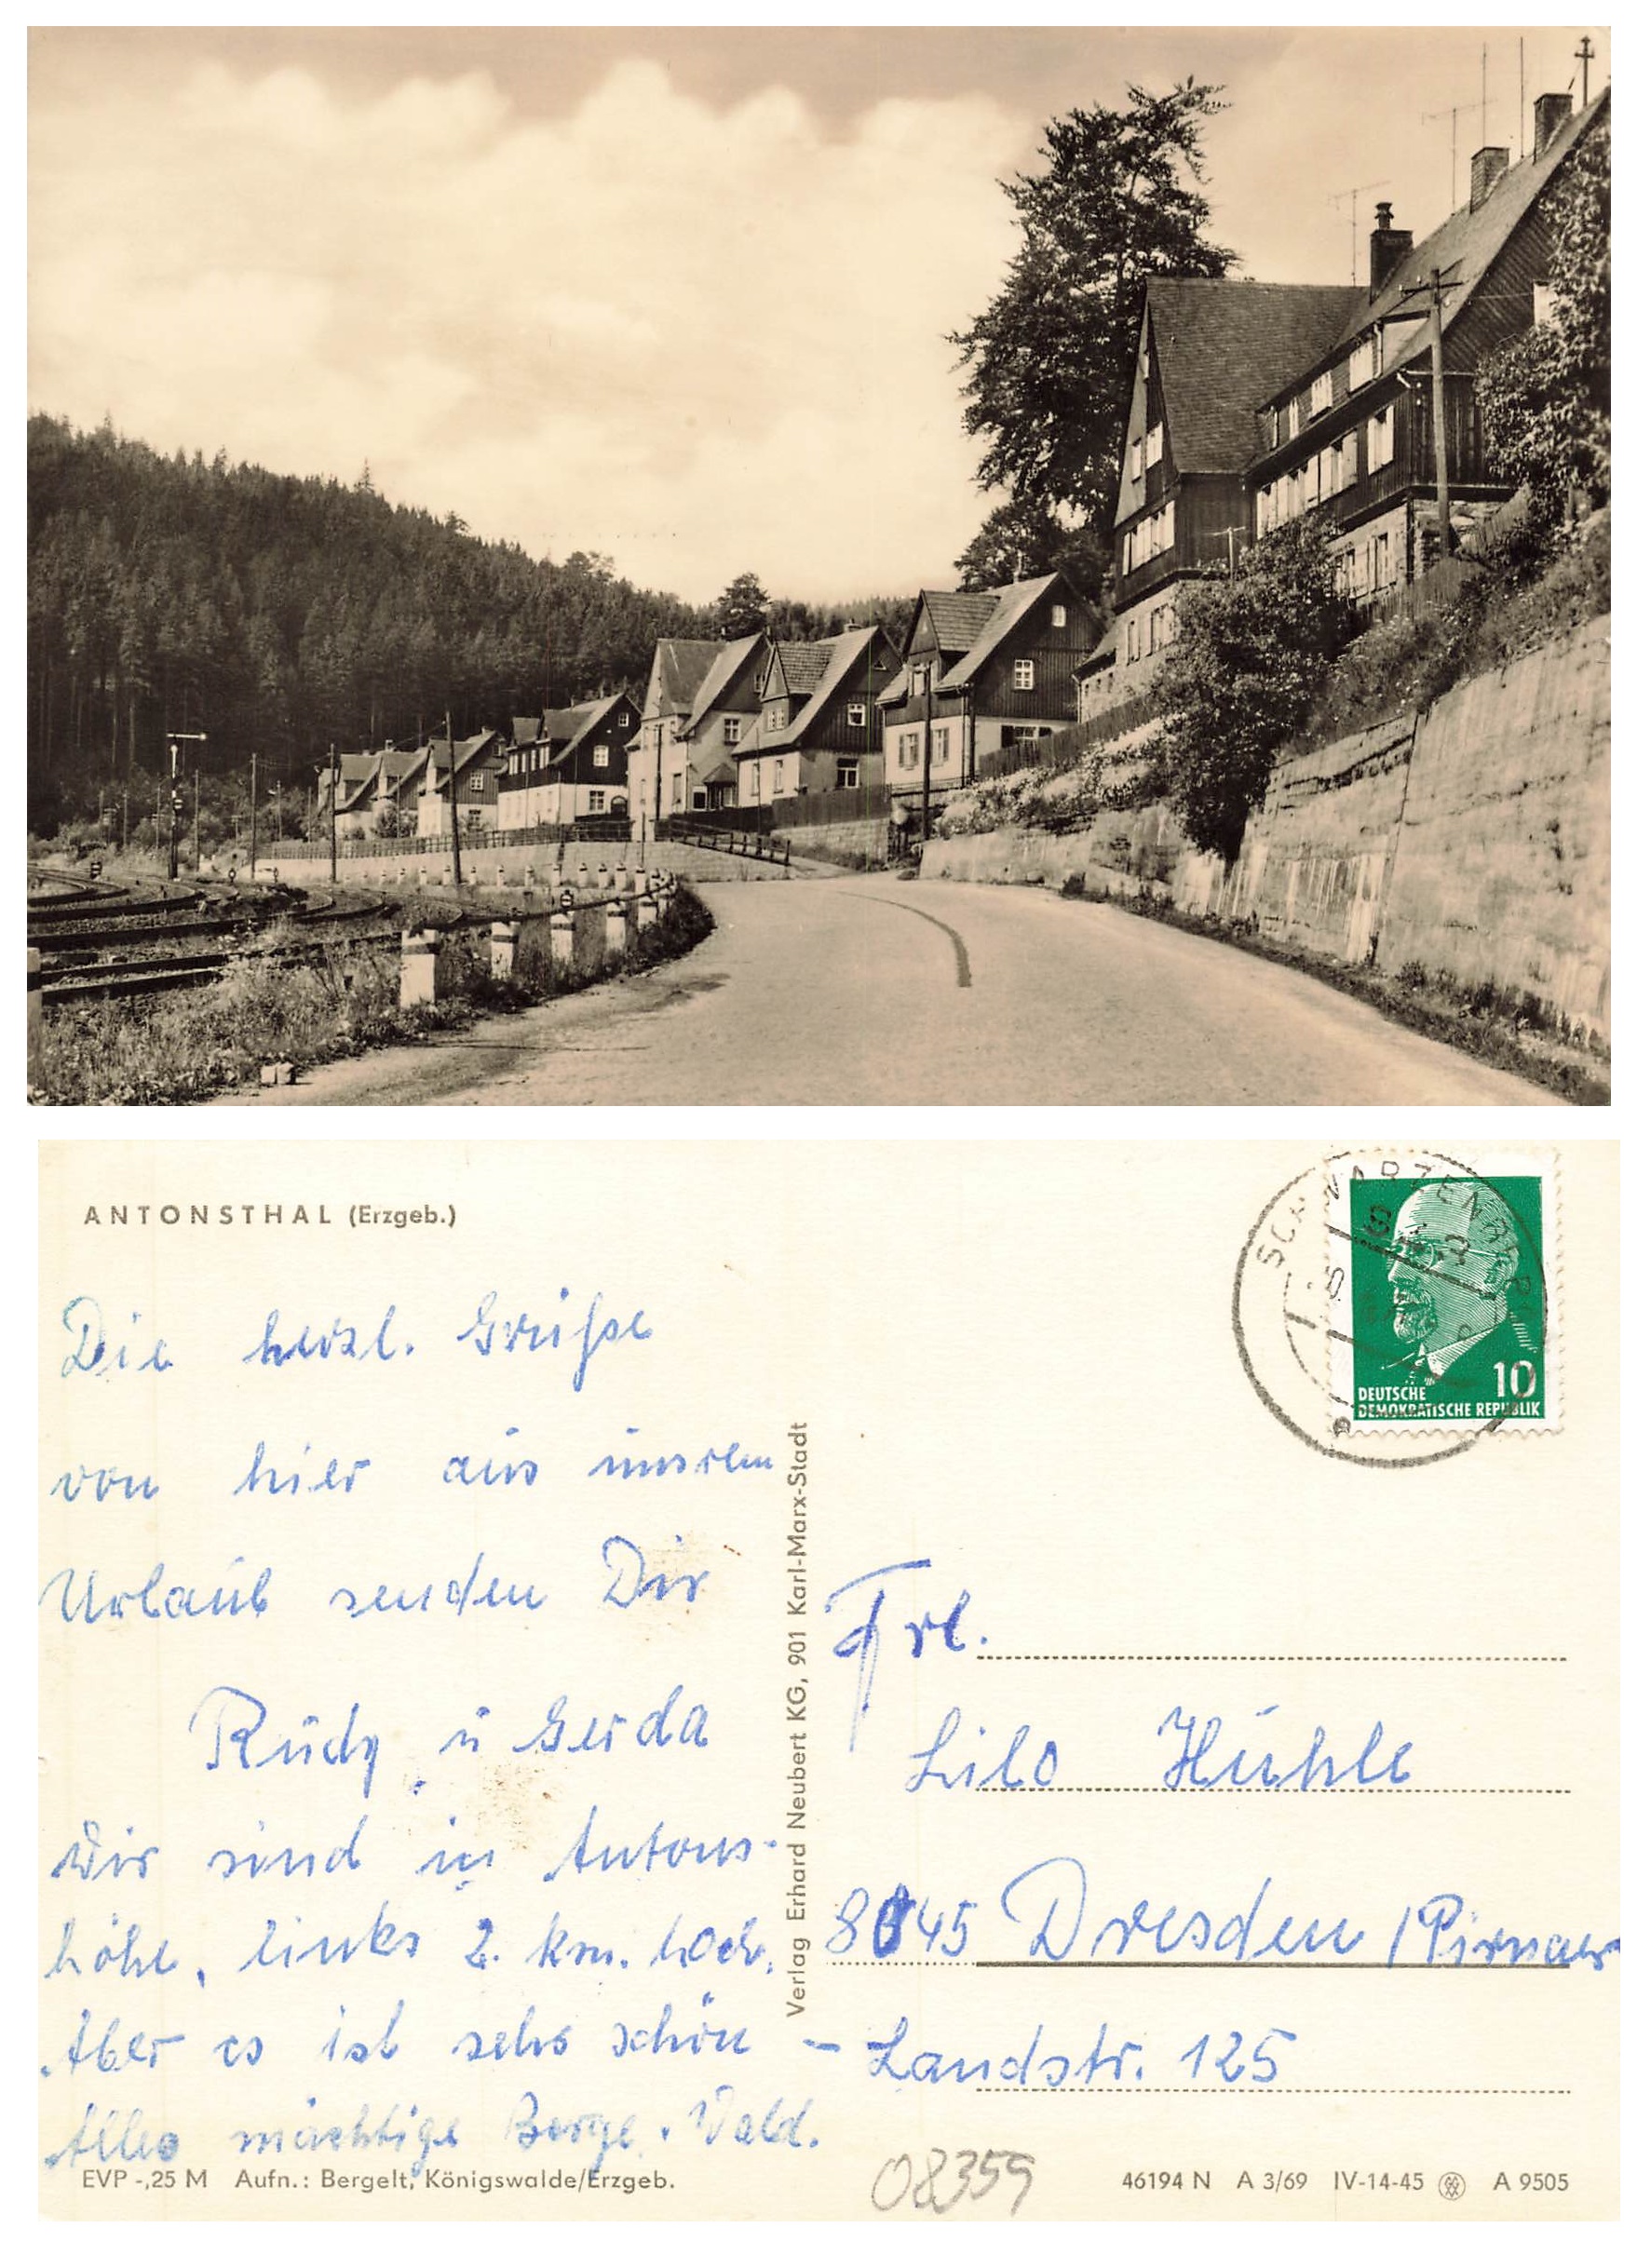 ANTONSTHAL (Erzgeb.)
Die herzl. Grüße
von hier aus unsrem
Urlaub senden Dir
Rudy u Gerda
Wir sind in Antons-
höhe, links 2. km. hoch.
Aber es ist sehr schön
Alles mächtige Berge. Wald.
EVP -,25 M Aufn.: Bergelt, Königswalde/Erzgeb.
Verlag Erhard Neubert KG, 901 Karl-Marx-Stadt
SCHWARZENBERG
10
DEUTSCHE
DEMOKRATISCHE REPUBLIK
Frl.
Lilo Hühle
8045 Dresden / Pirnaer
- Landstr. 125
08359
46194 N A 3/69 IV-14-45 A 9505